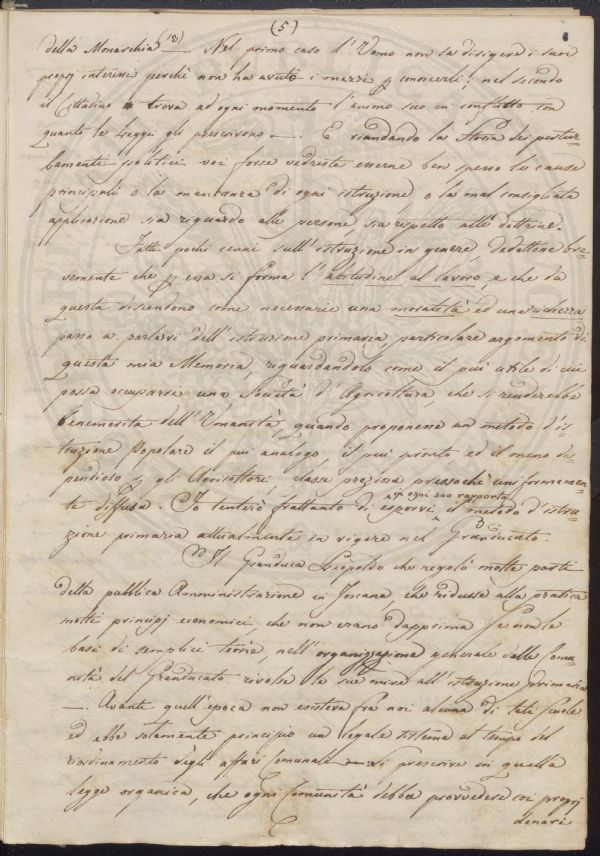 (5)
della Monarchia (13) —. Nel primo caso l'Uomo non sa dirigere i suoi
proprj interessi perchè non ha avuti i mezzi p conoscerli; nel secondo
il Cittadino trova ad ogni momento l'animo suo in conflitto con
quanto le Leggi gli prescrivono —. E riandando la Storia dei pertur-
bamenti politici voi forse vedreste esserne ben spesso le cause
principali o la mancanza di ogni istruzione o la mal consigliata
applicazione sia riguardo alle persone, sia rispetto alle dottrine.
Fatti pochi cenni sull'istruzione in genere, dedottone bre-
vemente che p essa si forma l'abitudine al lavoro, e che da
questa discendono come necessarie una moralità ed una richezza
passo a parlarvi dell'istruzione primaria particolare argomento di
questa mia Memoria, riguardandolo come il più utile di cui
possa occuparsi una Società d'Agricoltura, che si renderebbe
benemerita dell'Umanità, quando proponesse un metodo d'is-
truzione Popolare il più analogo, il più pronto ed il meno di-
spendioso p gli Agricoltori, classe preziosa pressochè uniformemen-
te diffusa. Io tenterò frattanto di esporvi p ogni suo rapporto il metodo d'istru-
zione primaria attualmente in vigore nel Granducato.
Il Granduca Leopoldo che regolò molte parti
della pubblica Amministrazione in Toscana, che ridusse alla pratica
molti principj economici, che non erano dapprima se non le
basi di semplici teorie, nell'organizzazione generale delle Comu-
nità del Granducato rivolse le sue mire all'istruzione primaria
—. Avante quell'epoca non esisteva fra noi alcuna di tali scuole
ed ebbe solamente principio un legale sistema al tempo del
riordinamento degli affari Comunali — si prescrive in quella
legge organica, che ogni Comunità debba provvedere coi proprj
denari